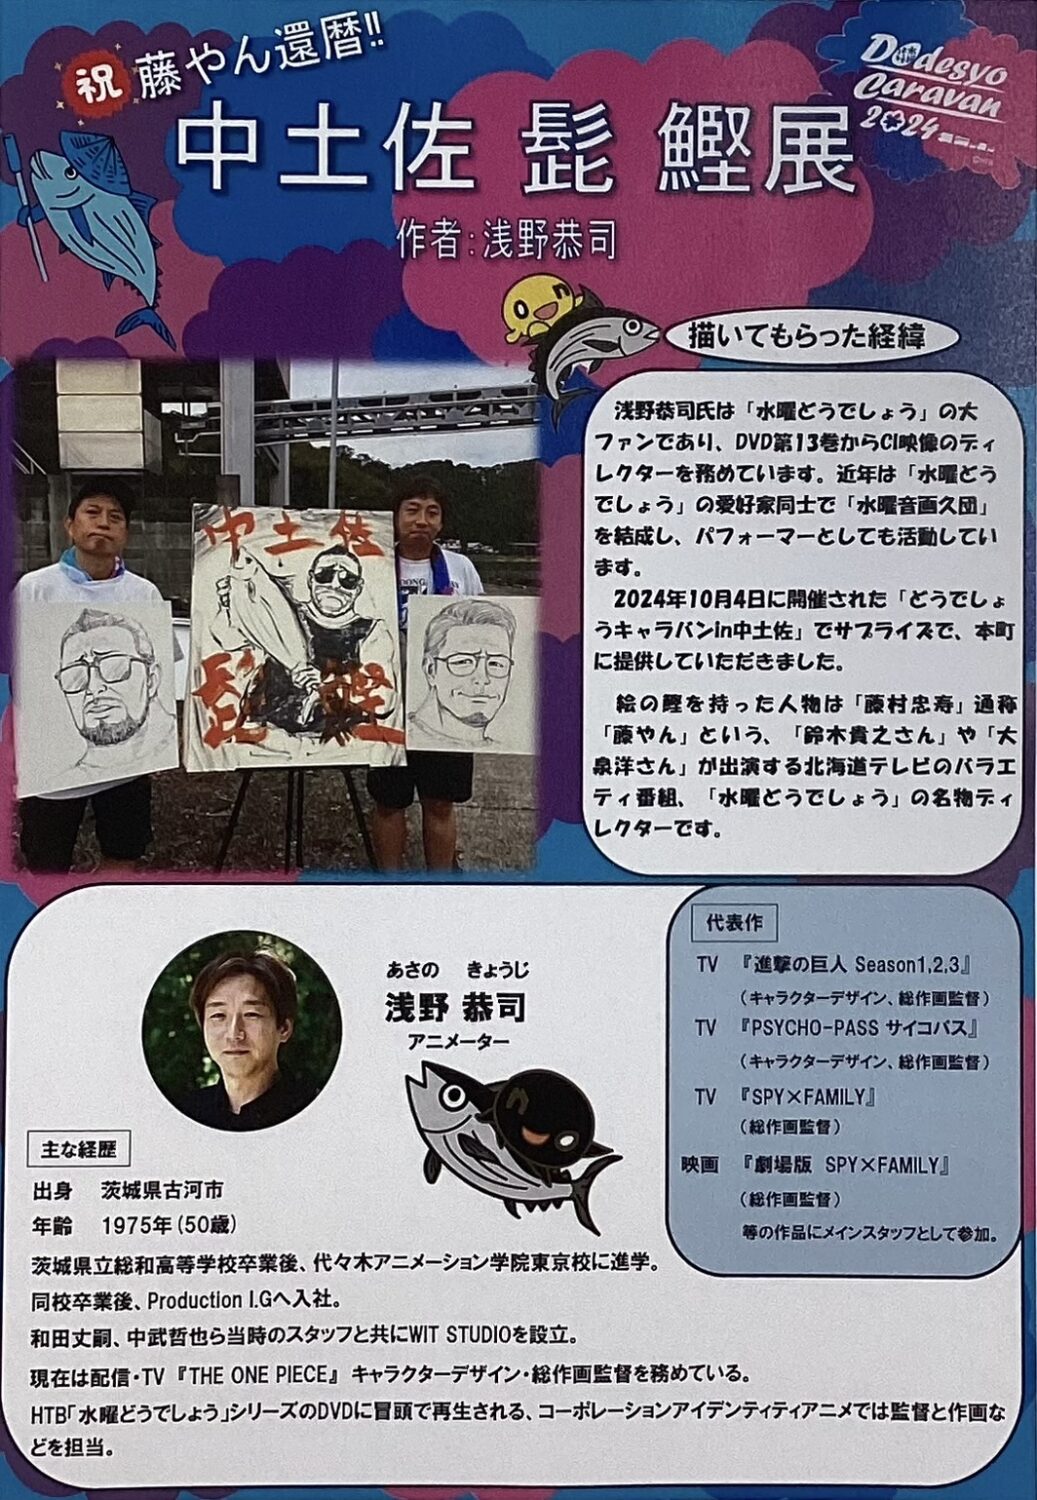 祝 藤やん還暦!!
Dodesyo
Caravan
2024
中土佐 髭 鰹展
作者:浅野恭司
描いてもらった経緯
浅野恭司氏は「水曜どうでしょう」の大
ファンであり、DVD第13巻からCI映像のディ
レクターを務めています。近年は「水曜どう
でしょう」の愛好家同士で「水曜音画久団」
を結成し、パフォーマーとしても活動してい
ます。
2024年10月4日に開催された「どうでしょ
うキャラバンin中土佐」でサプライズで、本町
に提供していただきました。
絵の鰹を持った人物は「藤村忠寿」通称
「藤やん」という、「鈴木貴之さん」や「大
泉洋さん」が出演する北海道テレビのバラエ
ティ番組、「水曜どうでしょう」の名物ディ
レクターです。
中土佐
髭 鰹
あさの きょうじ
浅野 恭司
アニメーター
代表作
TV 『進撃の巨人 Season1,2,3』
(キャラクターデザイン、総作画監督)
TV 『PSYCHO-PASS サイコパス』
(キャラクターデザイン、総作画監督)
TV 『SPY×FAMILY』
(総作画監督)
映画 『劇場版 SPY×FAMILY』
(総作画監督)
等の作品にメインスタッフとして参加。
主な経歴
出身 茨城県古河市
年齢 1975年(50歳)
茨城県立総和高等学校卒業後、代々木アニメーション学院東京校に進学。
同校卒業後、Production I.Gへ入社。
和田丈嗣、中武哲也ら当時のスタッフと共にWIT STUDIOを設立。
現在は配信・TV 『THE ONE PIECE』 キャラクターデザイン・総作画監督を務めている。
HTB「水曜どうでしょう」シリーズのDVDに冒頭で再生される、コーポレーションアイデンティティアニメでは監督と作画な
どを担当。